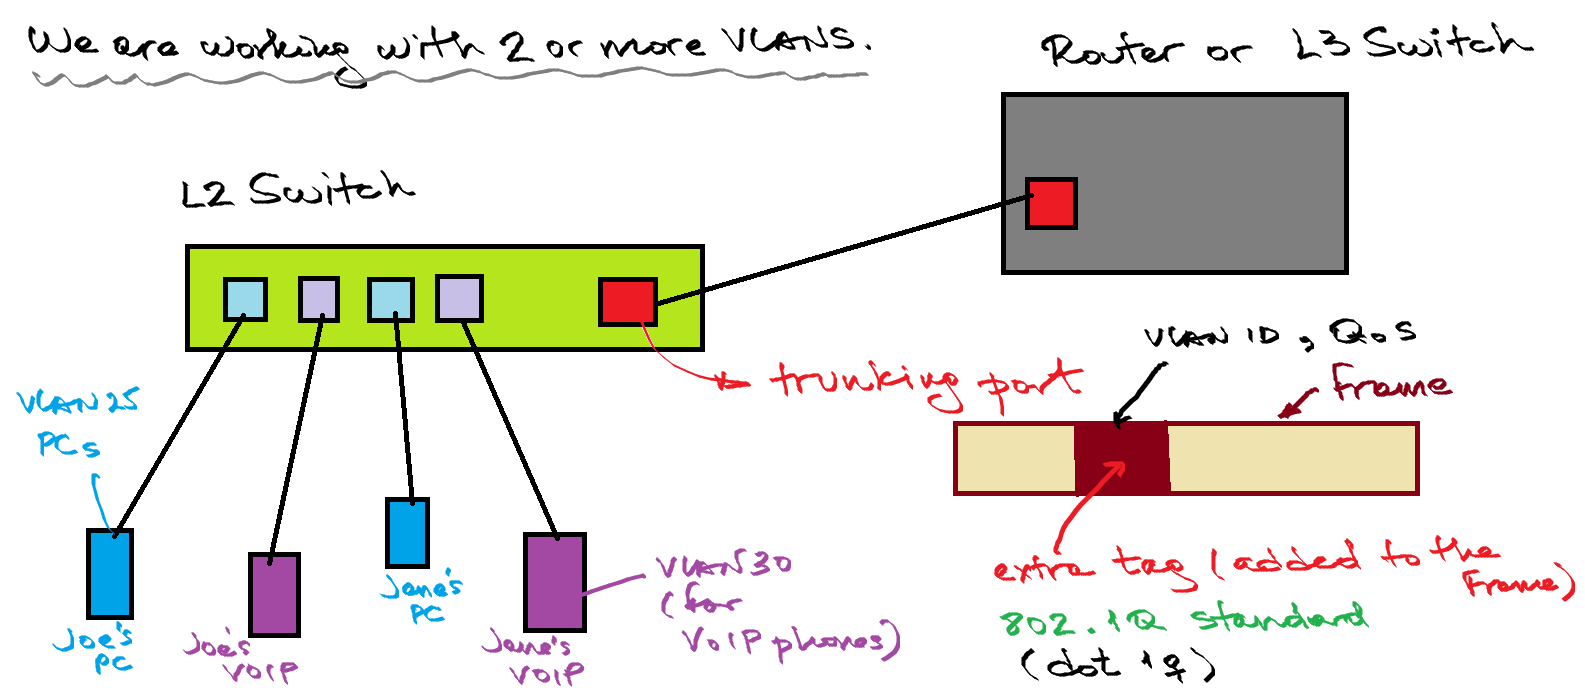 We are working with 2 or more VLANS.
Router or L3 Switch
L2 Switch
trunking port
VLAN ID, QoS
Frame
VLAN 25
PCs
Joe's
PC
Joe's
VOIP
Jane's
PC
Jane's
VOIP
VLAN 30
(for
VoIP phones)
extra tag (added to the
Frame)
802.1Q standard
(dot 1q)